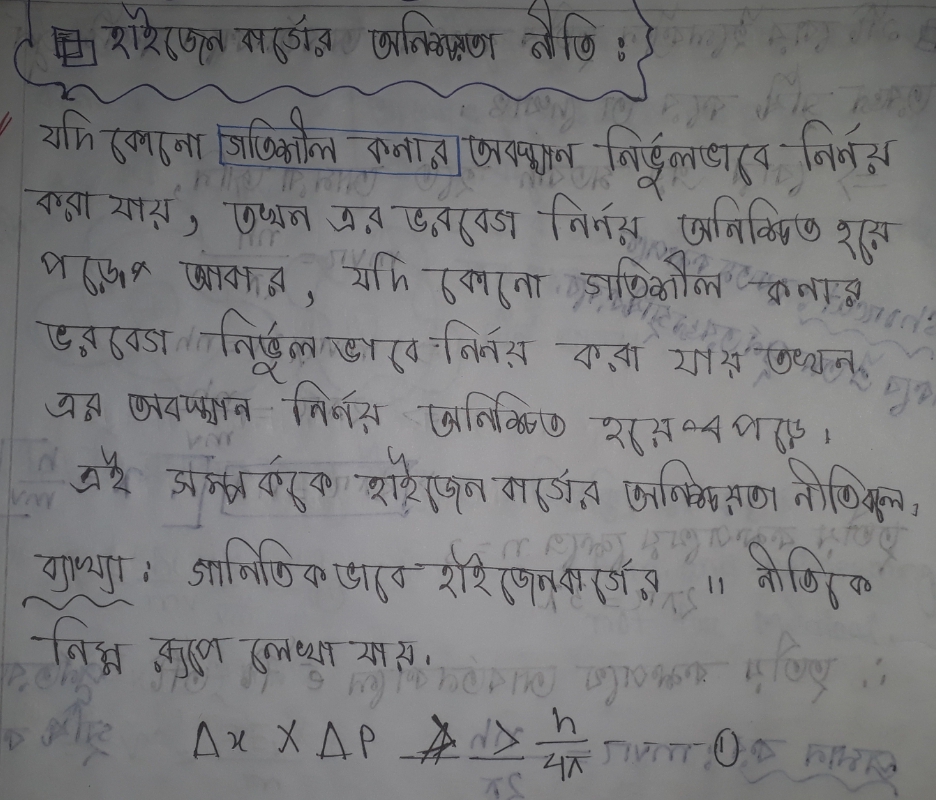 হাইজেন বার্গের অনিশ্চয়তা নীতি :
যদি কোনো গতিশীল কনার অবস্থান নির্ভুলভাবে নির্নয়
করা যায় , তখন এর ভরবেগ নির্নয় অনিশ্চিত হয়ে
পড়ে। আবার , যদি কোনো গতিশীল কনার
ভরবেগ নির্ভুল ভাবে নির্নয় করা যায় তখন
এর অবস্থান নির্নয় অনিশ্চিত হয়ে পড়ে।
এই সম্পর্ককে হাইজেন বার্গের অনিশ্চয়তা নীতি বলে।
ব্যাখ্যা : গানিতিক ভাবে হাইজেনবার্গের " নীতিকে
নিম্ন রূপে লেখা যায়।
Δx × ΔP ≥ h/4π ---- ①